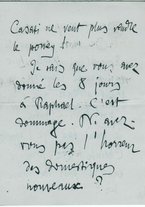 Casati ne veut plus vendre
le poney
Je sais que vous avez
donné les 8 jours
à Raphael. C'est
dommage. N'avez-
vous pas l'horreur
des domestiques
nouveaux ?